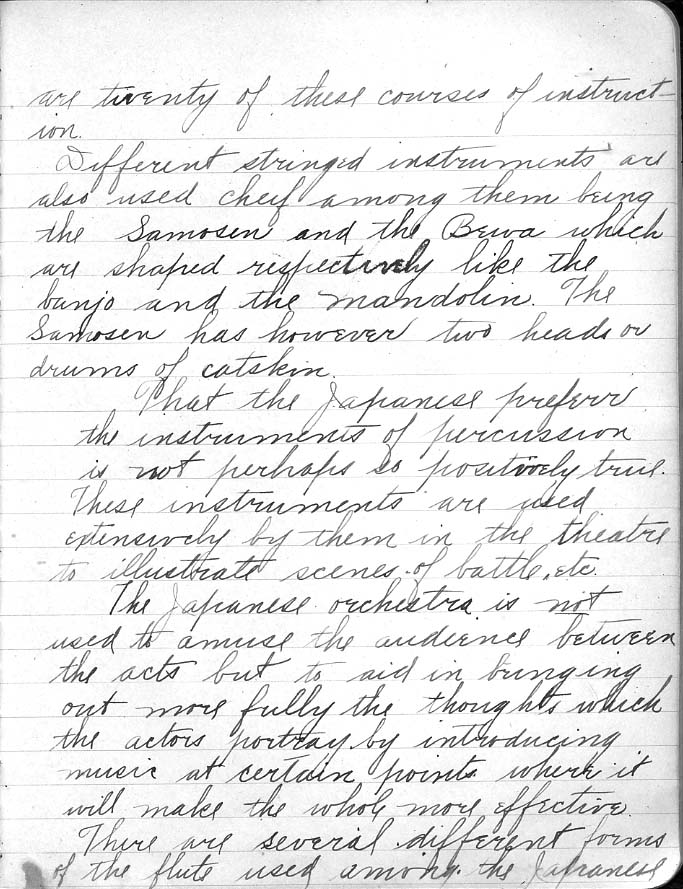 are twenty of these courses of instruct-
ion.
Different stringed instruments are
also used cheif among them being
the Samosen and the Bewa which
are shaped respectively like the
banjo and the mandolin. The
Samosen has however two heads or
drums of catskin.
That the Japanese preferr
the instruments of percussion
is not perhaps so positively true.
These instruments are used
extensively by them in the theatre
to illustrate scenes of battle, etc.
The Japanese orchestra is not
used to amuse the audience between
the acts but to aid in bringing
out more fully the thoughts which
the actors portray by introducing
music at certain points where it
will make the whole more effective.
There are several different forms
of the flute used among the Japanese